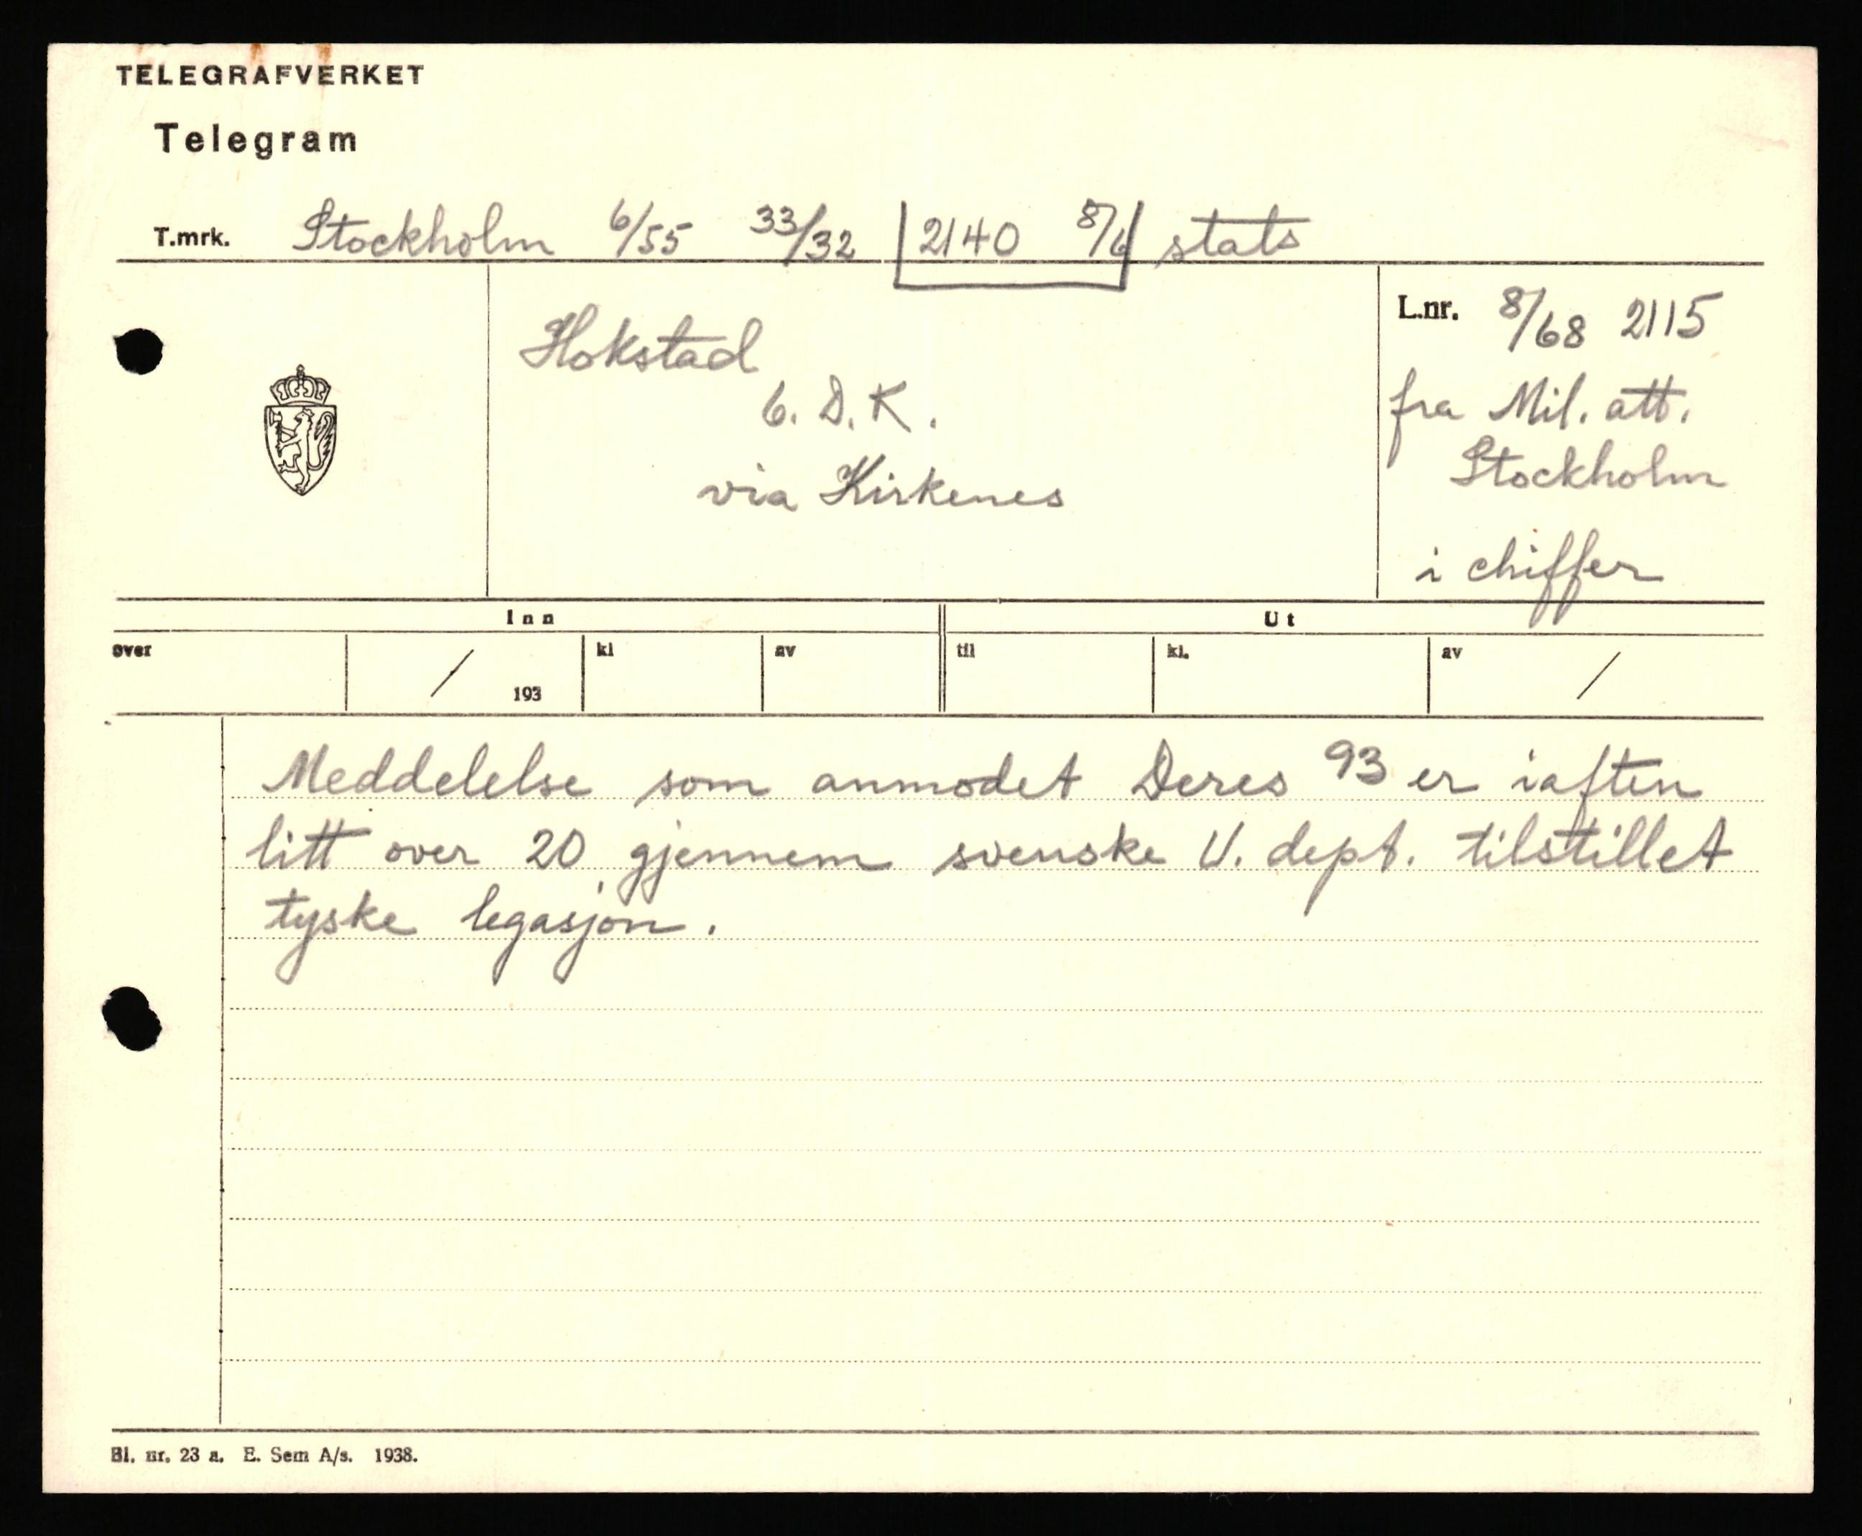 TELEGRAFVERKET
Telegram
T.mrk. Stockholm 6/55 33/32 2140 8/6 stats
L.nr. 8/68 2115
fra Mil. att.
Stockholm
i chiffer
Hokstad
6. D. K.
via Kirkenes
Inn Ut
over / 193 kl av til kl. av /
Meddelelse som anmodet Deres 93 er iaften
litt over 20 gjennem svenske U. dept. tilstillet
tyske legasjon.
Bl. nr. 23 a. E. Sem A/s. 1938.